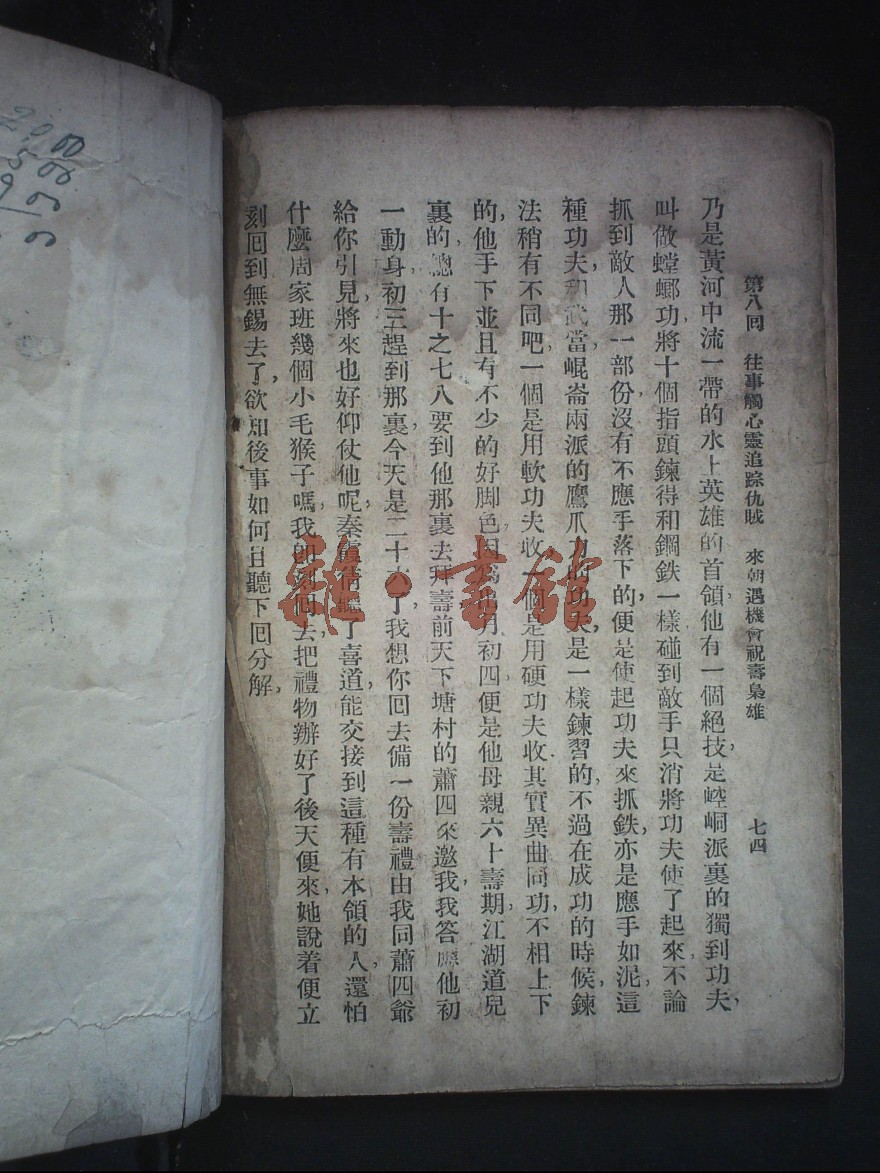 第八回 往事觸心靈追踪仇賊 來朝遇機會祝壽梟雄 七四
乃是黃河中流一帶的水上英雄的首領，他有一個絕技，是崆峒派裏的獨到功夫，
叫做螳螂功，將十個指頭鍊得和鋼鉄一樣，碰到敵手，只消將功夫使了起來，不論
抓到敵人那一部份，沒有不應手落下的，便是使起功夫來抓鉄，亦是應手如泥，這
種功夫和武當崐崙兩派的鷹爪力的功夫，是一樣鍊習的，不過在成功的時候，鍊
法稍有不同吧，一個是用軟功夫收，一個是用硬功夫收，其實異曲同功，不相上下
的，他手下並且有不少的好脚色，因爲出月初四，便是他母親六十壽期，江湖道兒
裏的，總有十之七八要到他那裏去拜壽，前天下塘村的蕭四來邀我，我答應他初
一動身，初三趕到那裏，今天是二十六了，我想你回去備一份壽禮，由我同蕭四爺
給你引見，將來也好仰仗他呢，秦 聽了喜道，能交接到這種有本領的人，還怕
什麼周家班幾個小毛猴子嗎，我卽刻回去把禮物辦好了，後天便來，她說着便立
刻回到無錫去了，欲知後事如何，且聽下回分解，
雜·書館